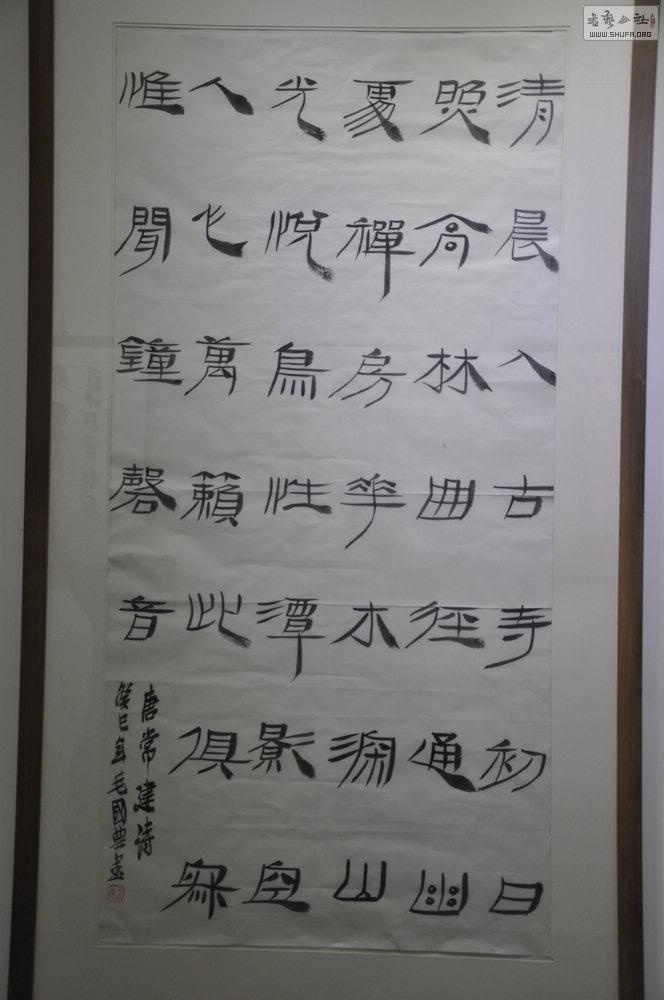 清晨入古寺初日
照高林曲徑通幽
處禪房花木深山
光悅鳥性潭影空
人心萬籟此俱寂
惟聞鐘磬音
唐常建詩
癸巳年毛國典書
書藝公社
WWW.SHUFA.ORG